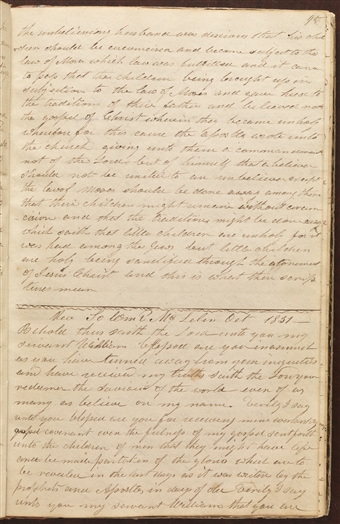 95
The unbelieveing husband was desirous that his chil
dren should be circumcised and become subject to the
law of Moses which law was fulfilled and it came
to pass that the children being brought up in
subjection to the law of Moses and gave heed to
the traditions of their Father and believed not
the gospel of Christ wherein they became unholy
wherefore for this cause the Apostle wrote unto
the church giving unto them a commandment
not of the Lord but of himself that a believer
should not be united to an unbeliever except
the law of Moses should be done away among them
that their children might remain without circum
cision and that the tradition might be done away
which saith that little children are unholy for it
was had among the Jews but little children
are holy being sanctified through the atonement
of Jesus Christ and this is what the scrip
tures mean
Rev To Wm E Mc Lelin Oct 1831
Behold thus saith the Lord unto you my
servant William blessed are you inasmuch
as you have turned away from your iniquities
and have received my truths saith the Lord your
redeemer the Saviour of the world even of as
many as believe on my name Verily I say
unto you blessed are you for receiving mine everlasting
covenant even the fulness of my gospel sent forth
unto the children of men that they might have life
and be made partakers of the glories which are to
be revealed in the last days as it was written by the
prophets and Apostles in days of old Verily I say
unto you my servant William that you are